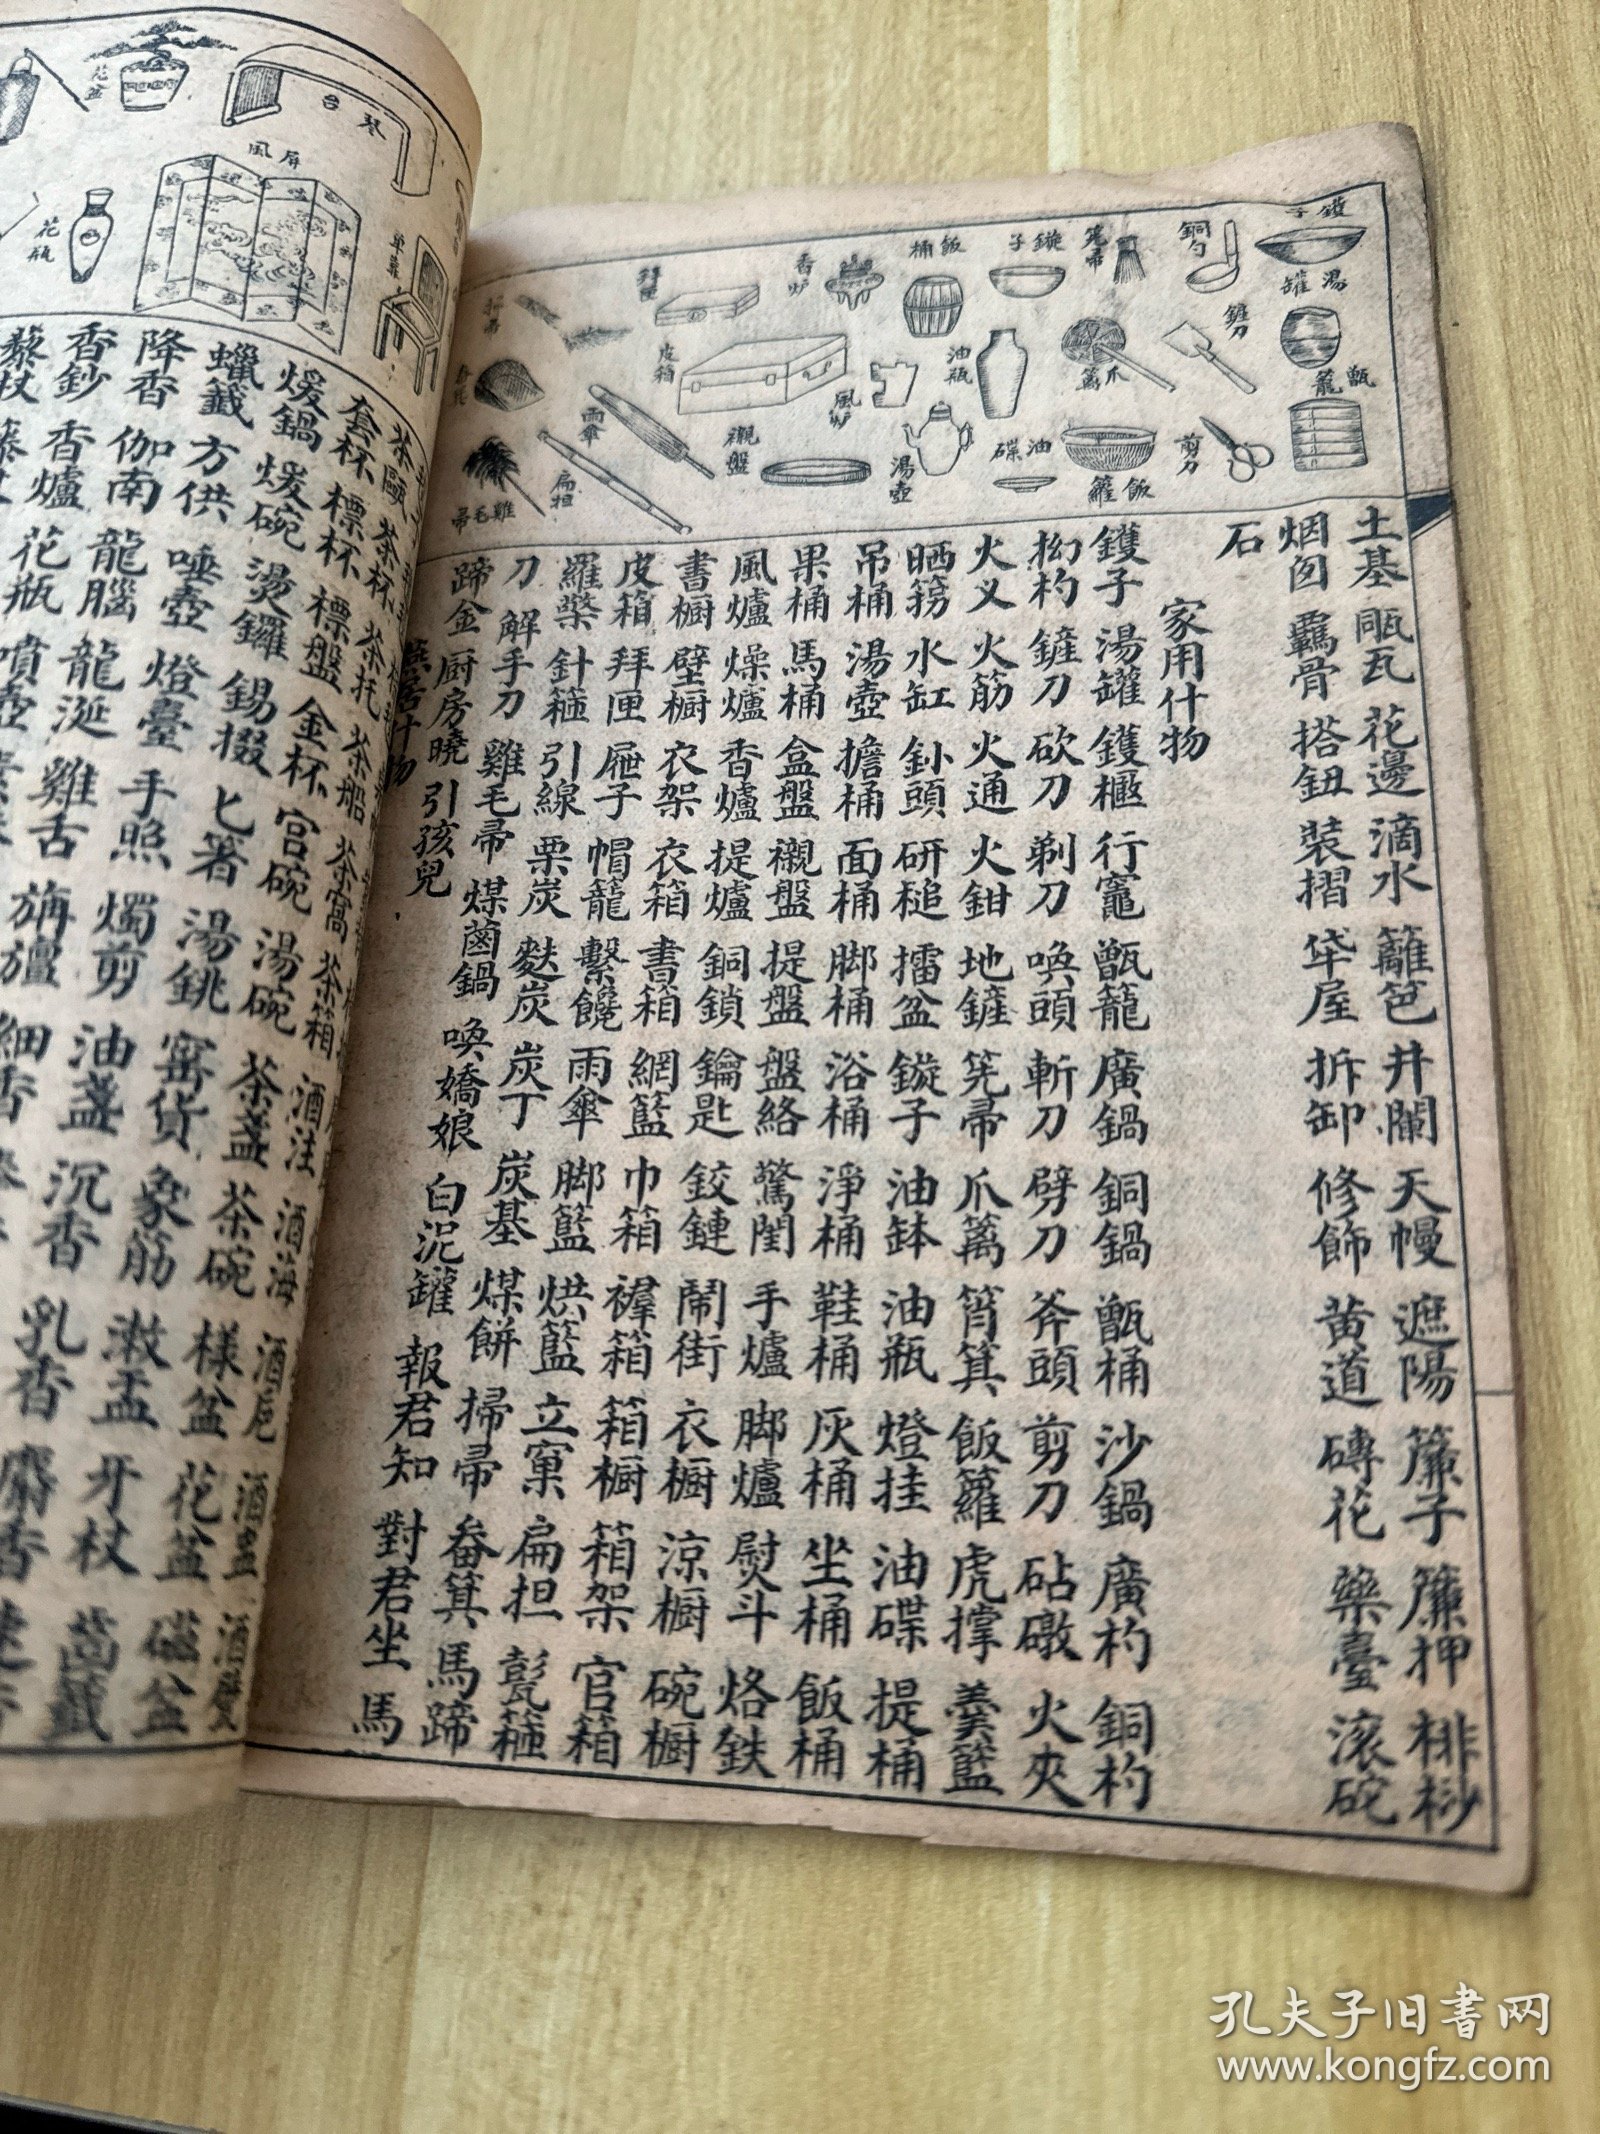 鑊子
銅勺
笼帚
鏇子
飯桶
香炉
拜匣
湯罐
鏟刀
爪籬
油瓶
風炉
皮箱
甑籠
剪刀
飯籮
油碟
湯壺
襯盤
雨傘
扁担
雞毛帚
土基 甋瓦 花邊 滴水 籬笆 井闌 天幔 遮陽 簾子 簾押 棑桫
烟囱 覊骨 搭鈕 裝摺 垈屋 拆卸 修飾 黄道 磚花 藥臺 滚砣
石
家用什物
鑊子 湯罐 鑊橶 行竈 甑籠 廣鍋 銅鍋 甑桶 沙鍋 廣杓 銅杓
抝杓 鏟刀 砍刀 剃刀 喚頭 斬刀 劈刀 斧頭 剪刀 砧礅 火夾
火义 火筋 火通 火鉗 地鏟 筅帚 爪籬 筲箕 飯籮 虎撑 羹籃
晒䈝 水缸 釙頭 研槌 擂盆 鏇子 油鉢 油瓶 燈挂 油碟 提桶
吊桶 湯壺 擔桶 面桶 脚桶 浴桶 淨桶 鞋桶 灰桶 坐桶 飯桶
果桶 馬桶 盒盤 襯盤 提盤 盤絡 驚閨 手爐 脚爐 熨斗 烙鉄
風爐 燥爐 香爐 提爐 銅鎖 鑰匙 鉸鏈 鬧街 衣橱 涼橱 碗橱
書橱 壁橱 衣架 衣箱 書箱 網籃 巾箱 襷箱 箱橱 箱架 官箱
皮箱 拜匣 屜子 帽籠 繫饞 雨傘 脚籃 烘籃 立窠 扁担 髭箍
羅檠 針箍 引線 栗炭 麩炭 炭丁 炭基 煤餅 掃帚 畚箕 馬蹄
刀 解手刀 雞毛帚 煤菌鍋 喚嬌娘 白泥罐 報君知 對君坐 馬
蹄金 厨房曉 引孩兒
花盆
琴台
屏風
花瓶
單靠
茶甌 茶杯 茶托 茶船 茶窩 茶箱 酒注 酒海 酒卮
套杯 標杯 標盤 金杯 宫碗 湯碗 茶盞 茶碗 樣盆 花盆 磁盆
煖鍋 煖碗 燙鑼 錫掇 匕箸 湯銚 窑货 象筋 漱盂 牙杖
蠟籤 方供 唾壺 燈臺 手照 燭剪 油盞 沉香 乳香
降香 伽南 龍腦 龍涎 雞舌 旃檀
香鈔 香爐 花瓶 噴壺
藜杖
孔夫子旧书网
www.kongfz.com